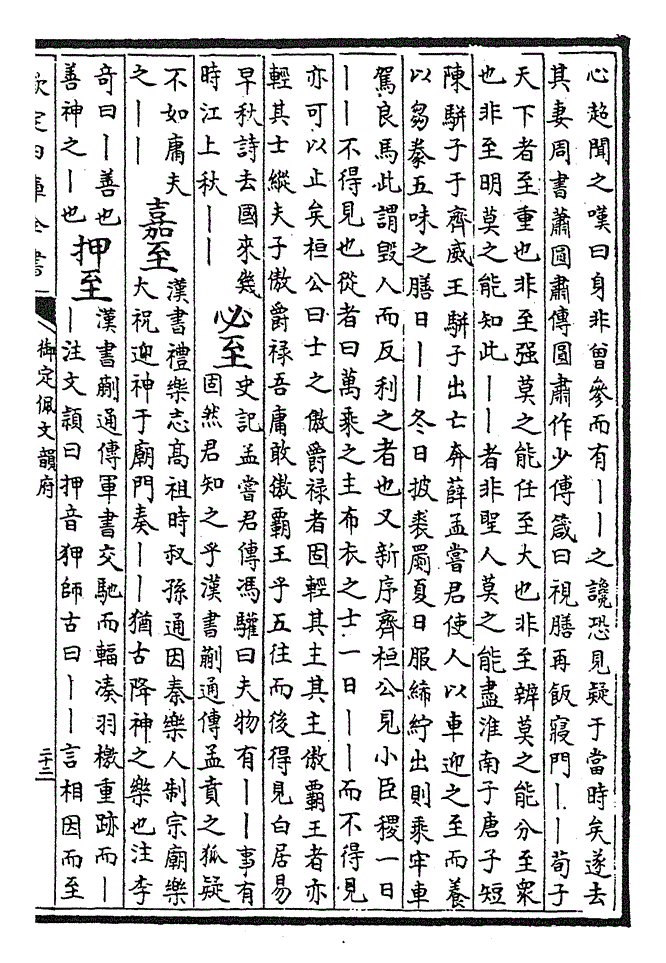 心超聞之嘆曰身非曾參而有丨丨之讒恐見疑于當時矣遂去
其妻周書蕭圓肅傳圓肅作少傅箴曰視膳再飯寢門丨丨荀子
天下者至重也非至强莫之能任至大也非至辨莫之能分至衆
也非至明莫之能知此丨丨者非聖人莫之能盡淮南子唐子短
陳駢子于齊威王駢子出亡奔薛孟嘗君使人以車迎之至而養
以芻豢五味之膳日丨丨冬日披裘罽夏日服絺紵出則乘牢車
駕良馬此謂毀人而反利之者也又新序齊桓公見小臣稷一日
丨丨不得見也從者曰萬乘之主布衣之士一日丨丨而不得見
亦可以止矣桓公曰士之傲爵禄者固輕其主其主傲霸王者亦
輕其士縱夫子傲爵禄吾庸敢傲霸王乎五往而後得見白居易
早秋詩去國來幾時江上秋丨丨
必至 史記孟嘗君傳馮驩曰夫物有丨丨事有固然君知之乎漢書蒯通傳孟賁之狐疑
不如庸夫之丨丨
嘉至 漢書禮樂志高祖時叔孫通因秦樂人制宗廟樂大祝迎神于廟門奏丨丨猶古降神之樂也注李
奇曰丨善也善神之丨也
押至 漢書蒯通傳軍書交馳而輻湊羽檄重跡而丨丨注文穎曰押音狎師古曰丨丨言相因而至
欽定四庫全書
御定佩文韻府
二十二